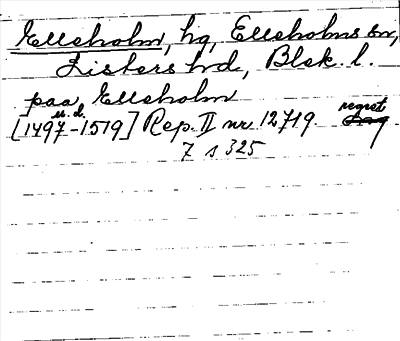 Elleholm, hg, Elleholms sn,
Listers hd, Blek. l.
paa Elleholm
u. d.
[1497-1519] Rep. II nr 12719. regest
7 s 325